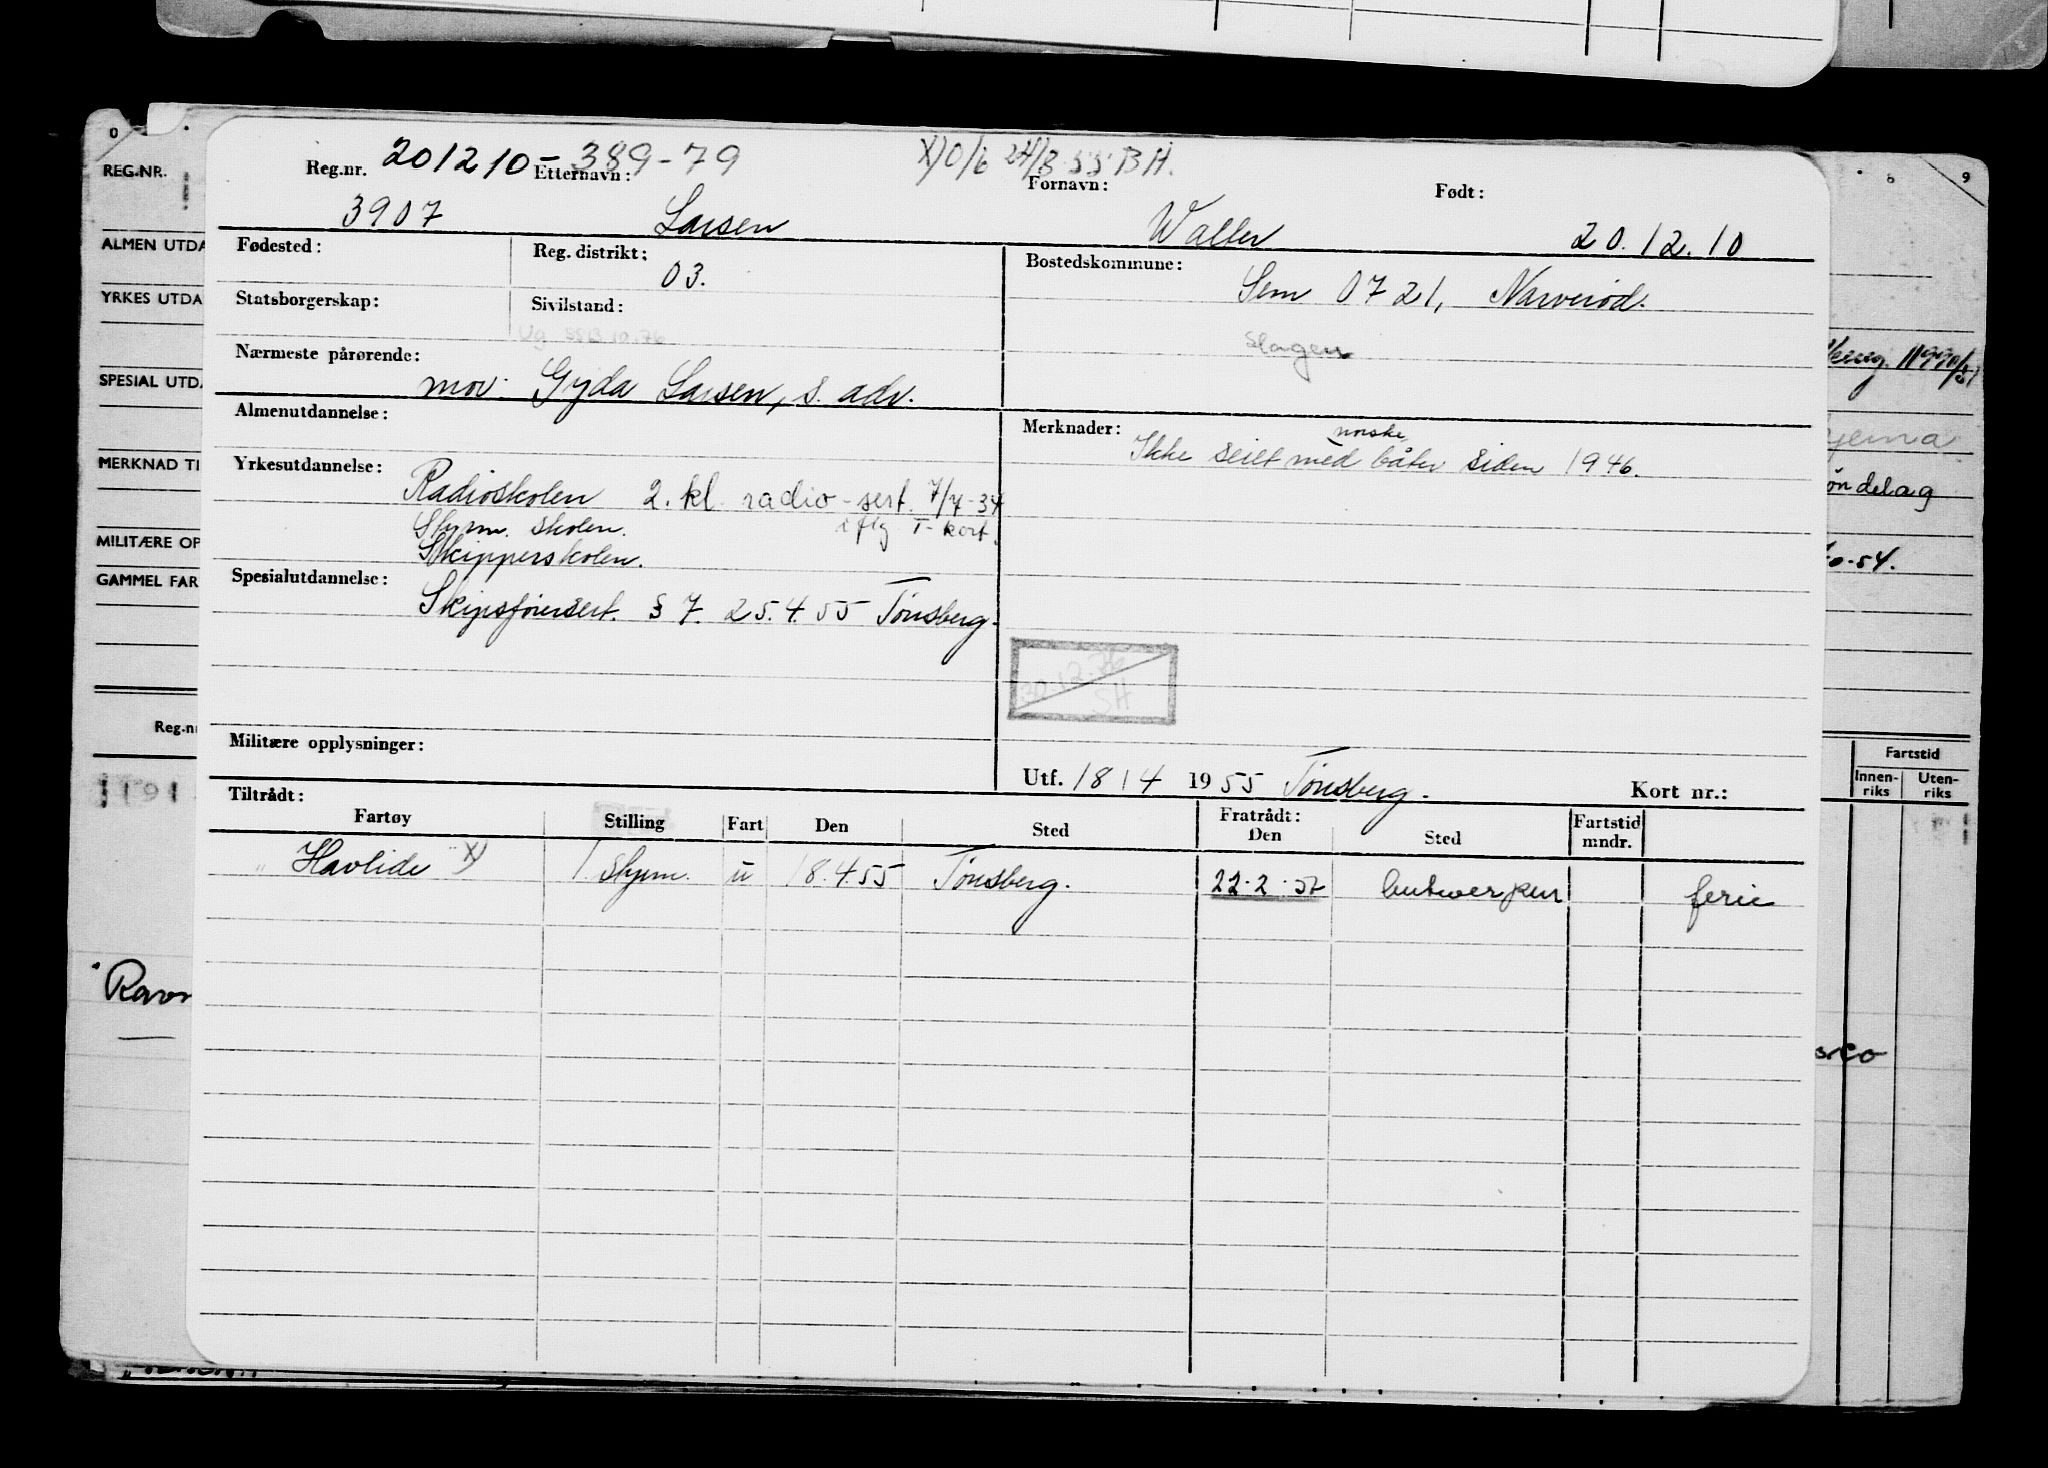 REG.NR.
ALMEN UTDA
YRKES UTDA
SPESIAL UTDA
MERKNAD TI
MILITÆRE OP
GAMMEL FAR
Reg.nr
Rav
Reg.nr. 201210-389-79 X) O/6 24/8-55 BH.
Etternavn: Fornavn: Født:
3907 Larsen Walter 20.12.10
Fødested: Reg. distrikt: 03. Bostedskommune: Sem 0721, Narverød.
Statsborgerskap: Sivilstand:
Ug. SSB 10.76 Slagen
Nærmeste pårørende: mor: Gyda Larsen, s. adr.
Almenutdannelse:
Merknader: Ikke seilt med norske båter siden 1946.
Yrkesutdannelse: Radioskolen 2. kl. radio-sert. 7/4-34
Styrm. skolen. iflg T-kort.
Skipperskolen.
Spesialutdannelse: Skipsførersert. § 7. 25.4.55 Tønsberg.
30.12.76
SH
Militære opplysninger:
Utf. 18/4 1955 Tønsberg. Kort nr.:
Tiltrådt: Fratrådt:
Fartøy Stilling Fart Den Sted Den Sted Fartstid mndr.
" Havlide X) 1 styrm. u 18.4.55 Tønsberg. 22.2.57 Antwerpen ferie
øndelag
10-54.
Fartstid
Innen-
riks
Uten-
riks